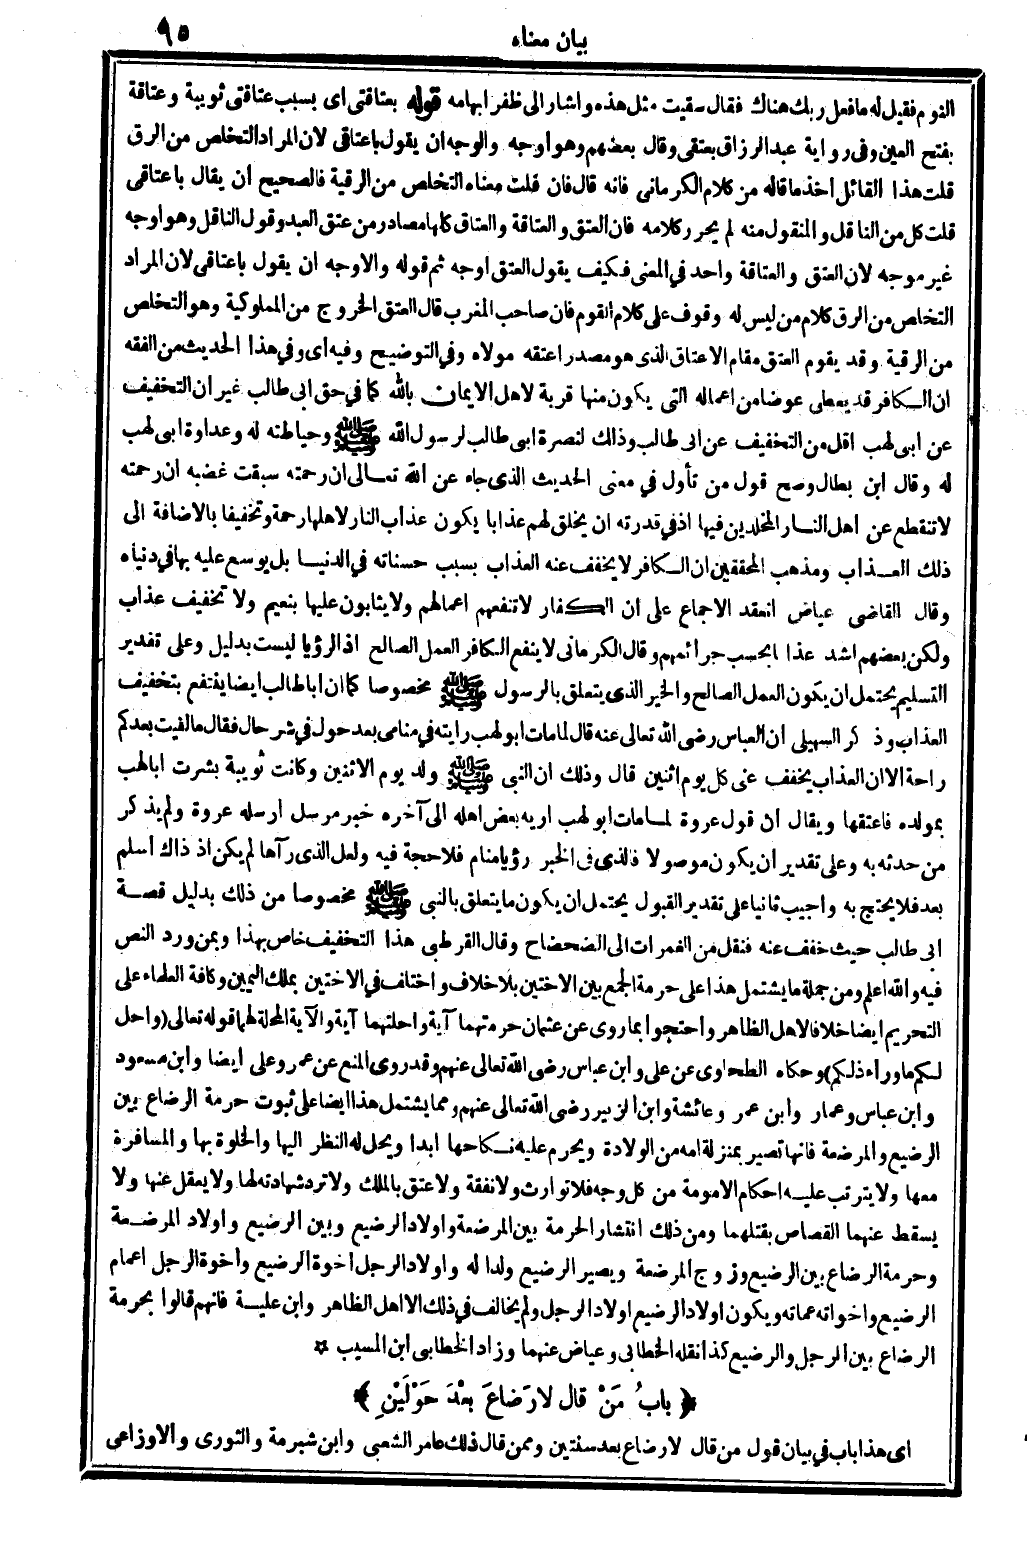 بيان معناه
٩٥
النوم فقيل له مافعل ربك هناك فقال سقيت مثل هذه واشار الى ظفر ابهامه قوله بعتاقتى اى بسبب عتاقتى ثويبة وعتاقة
بفتح العين وفى رواية عبد الرزاق بعتقى وقال بعضهم وهو أوجه والوجه ان يقول باعتاقى لان المراد التخلص من الرق
قلت هذا القائل أخذ ماقاله من كلام الكرمانى فانه قال فان قلت معناه التخلص من الرقية فالصحيح أن يقال باعتاقى
قلت كل من الناقل والمنقول منه لم يحرر كلامه فان العتق والعتاقة والعتاق كلها مصادر من عتق العبد وقول الناقل وهو اوجه
غير موجه لان العتق والعتاقة واحد في المعنى فكيف يقول العتق اوجه ثم قوله والاوجه ان يقول باعتاقى لان المراد
التخلص من الرق كلام من ليس له وقوف على كلام القوم فان صاحب المغرب قال العتق الخروج من المملوكية وهو التخلص
من الرقية وقد يقوم العتق مقام الاعتاق الذى هو مصدر اعتقه مولاه وفي التوضيح وفيه اى وفي هذا الحديث من الفقه
ان الكافر قد يعطى عوضا من اعماله التى يكون منها قربة لاهل الايمان بالله كما في حق ابى طالب غير ان التخفيف
عن ابى لهب اقل من التخفيف عن ابى طالب وذلك لنصرة ابى طالب لرسول الله ﷺ وحياطته له وعداوة ابى لهب
له وقال ابن بطال وصح قول من تأول في معنى الحديث الذى جاء عن الله تعالى ان رحمته سبقت غضبه ان رحمته
لا تنقطع عن اهل النار المخلدين فيها اذ في قدرته ان يخلق لهم عذابا يكون عذاب النار لاهلها رحمة وتخفيفا بالاضافة الى
ذلك العذاب ومذهب المحققين ان الكافر لا يخفف عنه العذاب بسبب حسناته في الدنيا بل يوسع عليه بها في دنياه
وقال القاضى عياض انعقد الاجماع على ان الكفار لا تنفعهم اعمالهم ولا يثابون عليها بنعيم ولا تخفيف عذاب
ولكن بعضهم اشد عذابا بحسب جرائمهم وقال الكرمانى لا ينفع الكافر العمل الصالح اذ الرؤيا ليست بدليل وعلى تقدير
التسليم يحتمل ان يكون العمل الصالح والخير الذى يتعلق بالرسول ﷺ مخصوصا كما ان ابا طالب ايضا ينتفع بتخفيف
العذاب وذكر السهيلى أن العباس رضى الله تعالى عنه قال لما مات ابو لهب رايته في منامى بعد حول في شر حال فقال مالقيت بعدكم
راحة الا ان العذاب يخفف عنى كل يوم اثنين قال وذلك ان النبى ﷺ ولد يوم الاثنين وكانت ثويبة بشرت ابا لهب
بمولده فاعتقها ويقال ان قول عروة لما مات ابو لهب اريه بعض اهله الى آخره خبر مرسل ارسله عروة ولم يذكر
من حدثه به وعلى تقدير أن يكون موصولا فالذى فى الخبر رؤيا منام فلا حجة فيه ولعل الذى رآها لم يكن اذ ذاك أسلم
بعد فلا يحتج به واجيب ثانيا على تقدير القبول يحتمل ان يكون ما يتعلق بالنبى ﷺ مخصوصا من ذلك بدليل قصة
ابى طالب حيث خفف عنه فنقل من الغمرات الى الضحضاح وقال القرطبى هذا التخفيف خاص بهذا وبمن ورد النص
فيه والله اعلم ومن جملة ما يشتمل هذا على حرمة الجمع بين الاختين بلا خلاف واختلف في الاختين بملك اليمين وكافة العلماء على
التحريم ايضا خلافا لاهل الظاهر واحتجوا بما روى عن عثمان حرمتهما آية واحلتهما آية والآية المحلة لهما قوله تعالى (واحل
لكم ما وراء ذلكم) وحكاه الطحاوى عن على وابن عباس رضى الله تعالى عنهم وقد روى المنع عن عمر وعلى ايضا وابن مسعود
وابن عباس وعمار وابن عمر وعائشة وابن الزبير رضى الله تعالى عنهم ومما يشتمل هذا ايضا على ثبوت حرمة الرضاع بين
الرضيع والمرضعة فانها تصير بمنزلة امه من الولادة ويحرم عليه نكاحها ابدا ويحل له النظر اليها والخلوة بها والمسافرة
معها ولا يترتب عليه احكام الامومة من كل وجه فلا توارث ولا نفقة ولا عتق بالملك ولا ترد شهادته لها ولا يعقل عنها ولا
يسقط عنهما القصاص بقتلهما ومن ذلك انتشار الحرمة بين المرضعة واولاد الرضيع وبين الرضيع واولاد المرضعة
وحرمة الرضاع بين الرضيع وزوج المرضعة ويصير الرضيع ولدا له واولاد الرجل اخوة الرضيع وأخوة الرجل اعمام
الرضيع واخواته عماته ويكون اولاد الرضيع اولاد الرجل ولم يخالف في ذلك الا اهل الظاهر وابن علية فانهم قالوا بحرمة
الرضاع بين الرجل والرضيع كذا نقله الخطابى وعياض عنهما وزاد الخطابى ابن المسيب ✡
﴿ بابُ مَنْ قال لا رَضاعَ بعْدَ حَوْلَيْنِ ﴾
اى هذا باب في بيان قول من قال لا رضاع بعد سنتين وممن قال ذلك عامر الشعبى وابن شبرمة والثورى والاوزاعى